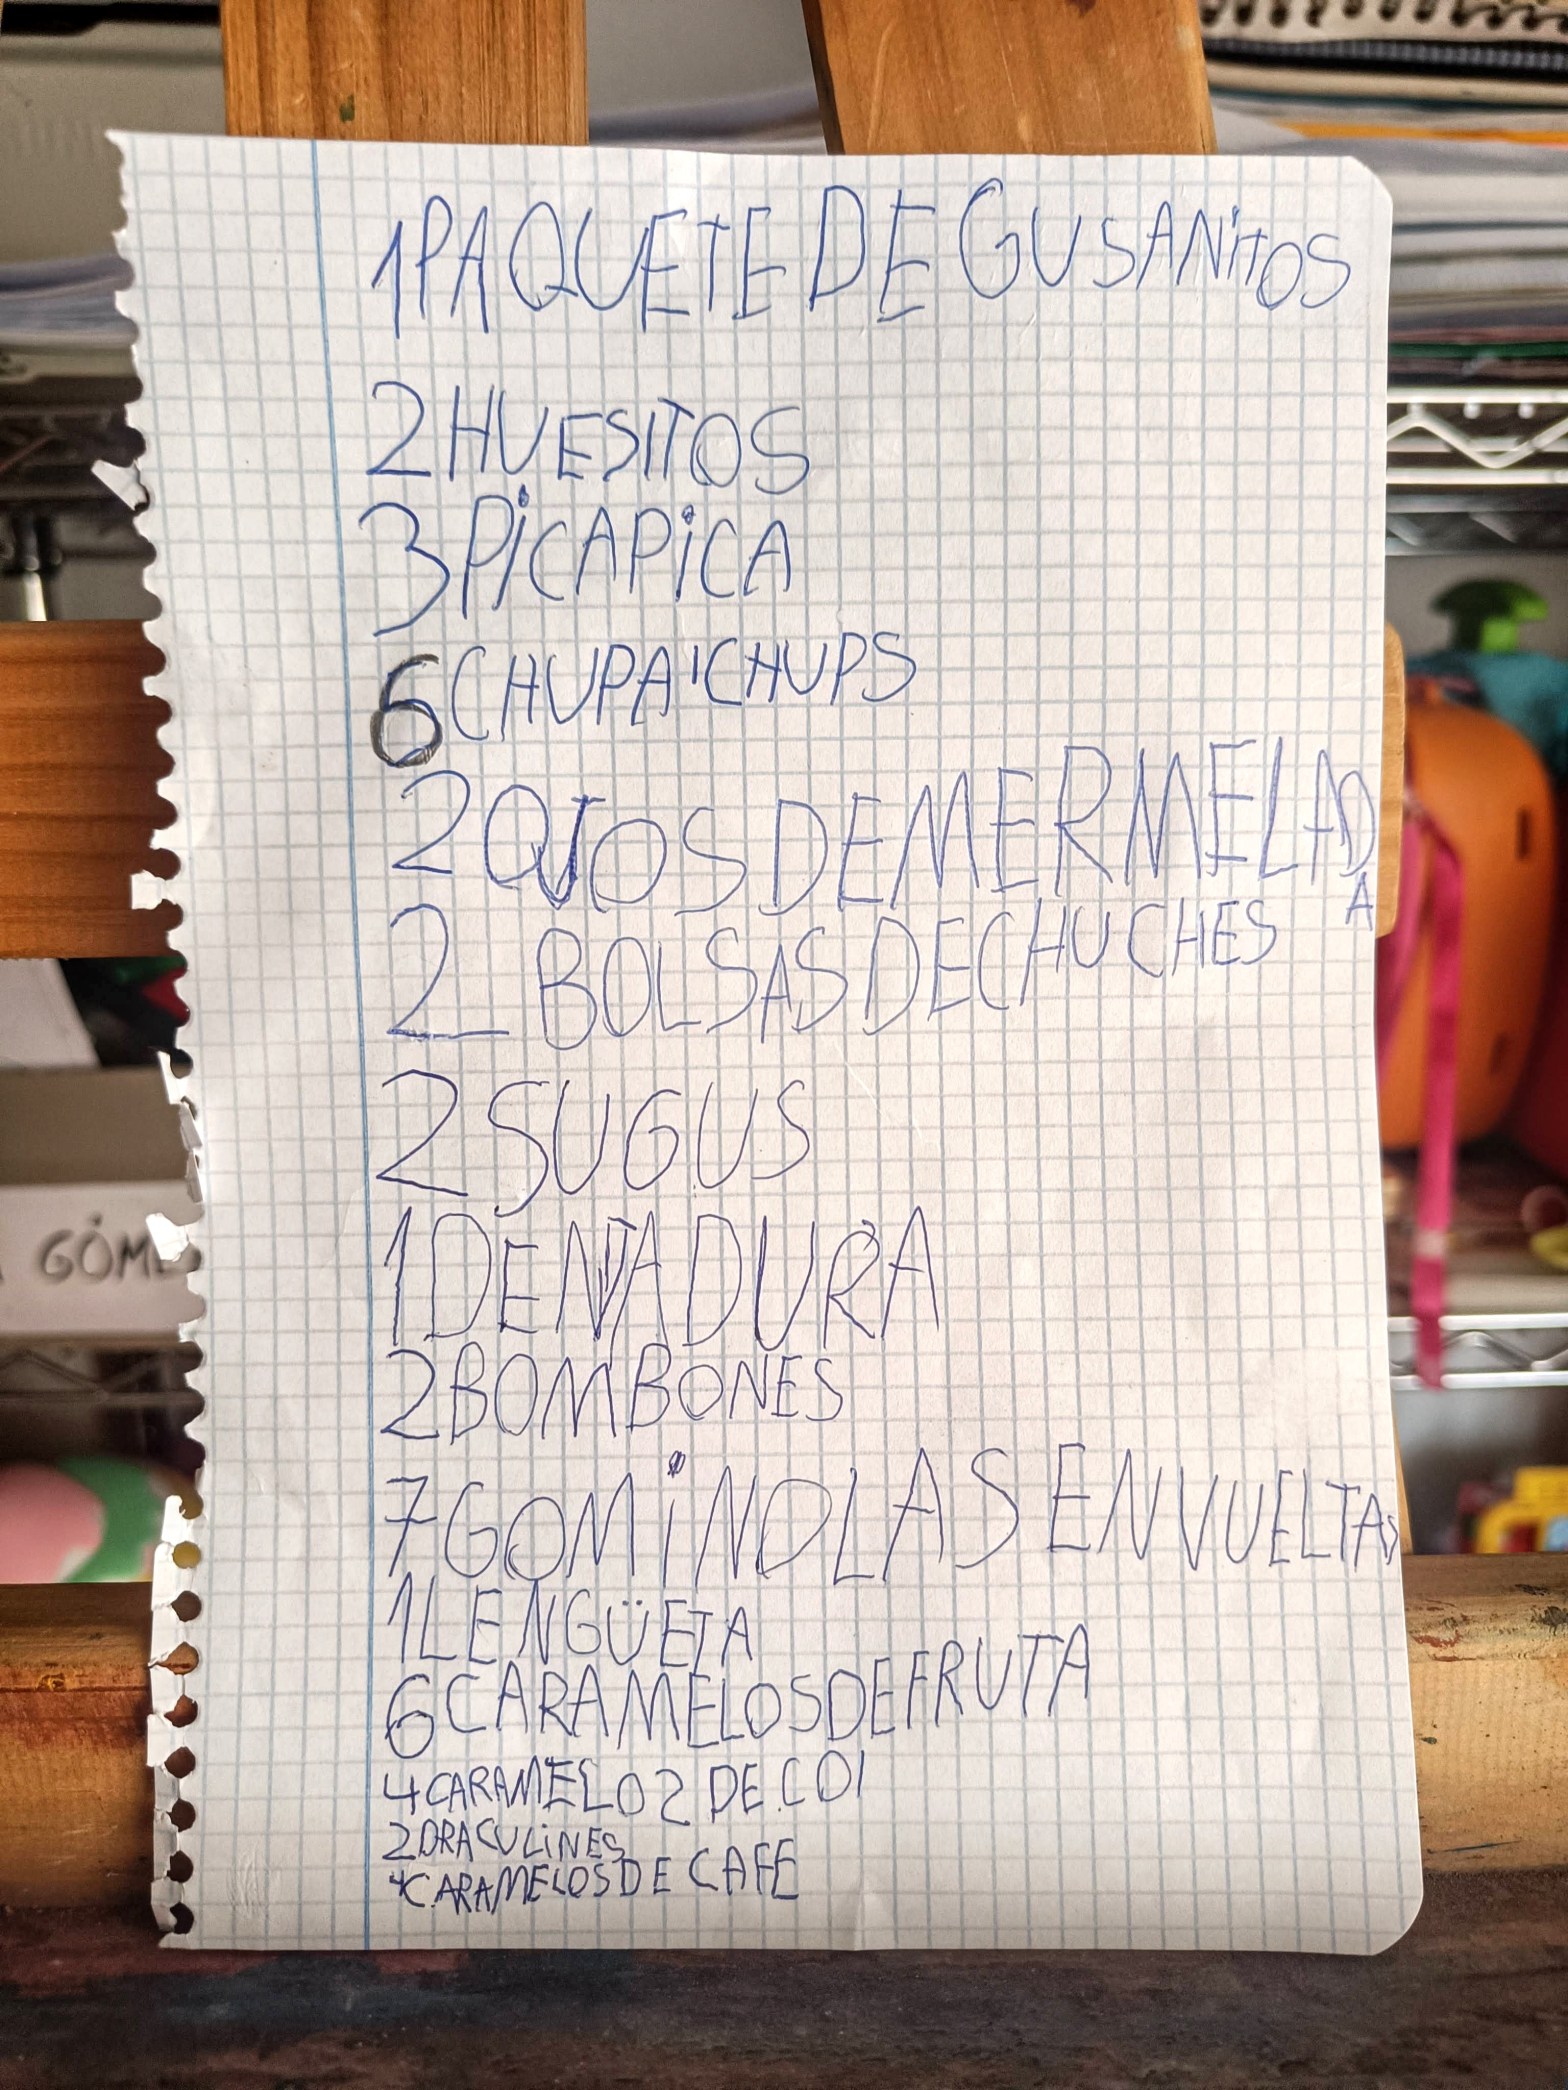 1 PAQUETE DE GUSANiTOS
2 HUESITOS
3 PiCAPiCA
6 CHUPA'CHUPS
2 OJOS DE MERMELADA
2 BOLSAS DE CHUCHES
2 SUGUS
1 DENTADURA
2 BOMBONES
7 GOMiNOLAS ENVUELTAS
1 LENGÜETA
6 CARAMELOS DE FRUTA
4 CARAMELO2 DE COI
2 DRACULiNES
4 CARAMELOS DE CAFE